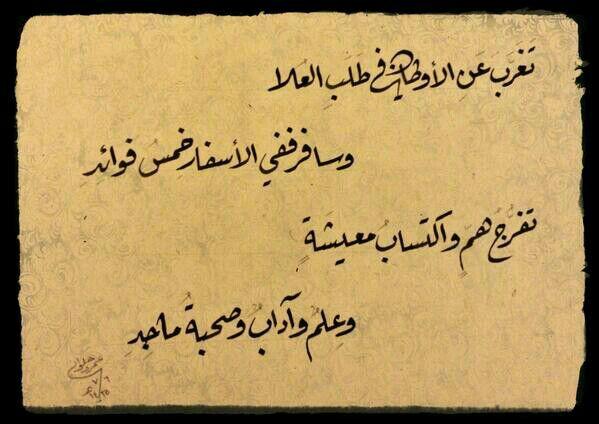 تغرَّبَ عَنِ الأوطان في طَلَبِ العُلا
وسافر ففي الأسفار خمسُ فوائدِ
تفرُّجُ همٍّ واكتسابُ معيشَةٍ
وعِلمٌ وآدابٌ وصحبةُ ماجدِ